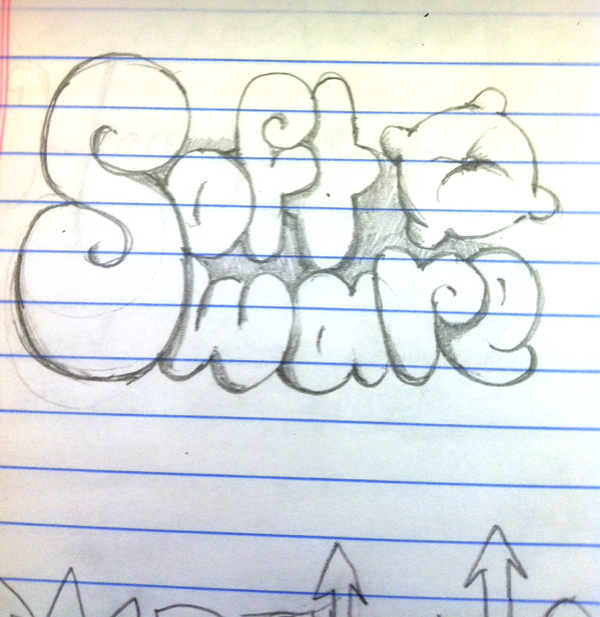 Soft
ware